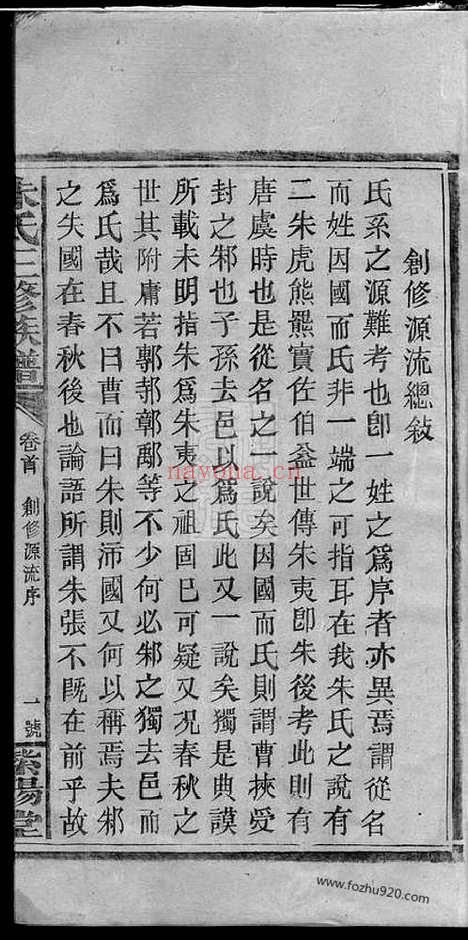 創修源流總敍
氏系之源難考也卽一姓之爲序者亦異焉謂從名
而姓因國而氏非一端之可指耳在我朱氏之說有
二朱虎熊羆實佐伯益世傳朱夷卽朱後考此則有
唐虞時也是從名之一說矣因國而氏則謂曹挾受
封之邾也子孫去邑以爲氏此又一說矣獨是典謨
所載未明指朱爲朱夷之祖固已可疑又况春秋之
世其附庸若鄟邿鄣鄅等不少何必邾之獨去邑而
爲氏哉且不曰曹而曰朱則沛國又何以稱焉夫邾
之失國在春秋後也論語所謂朱張不旣在前乎故
朱氏三修族譜
卷首
創修源流序
一號
紫陽堂
nayona.cn
www.fozhu920.com